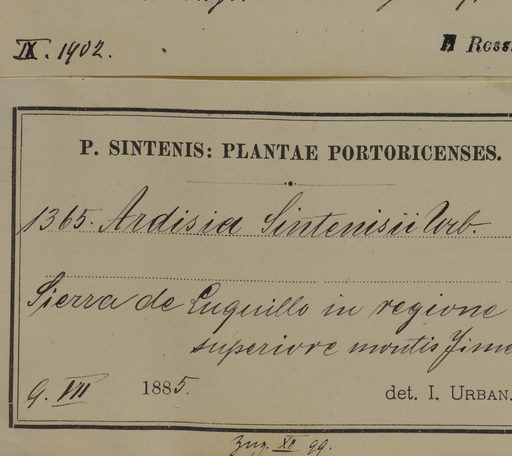 IX. 1902.
P. SINTENIS: PLANTAE PORTORICENSES.
1365. Ardisia Sintenisii Urb.
Sierra de Luquillo in regione
superiore montis Jime
9. VII 1885.
det. I. URBAN.